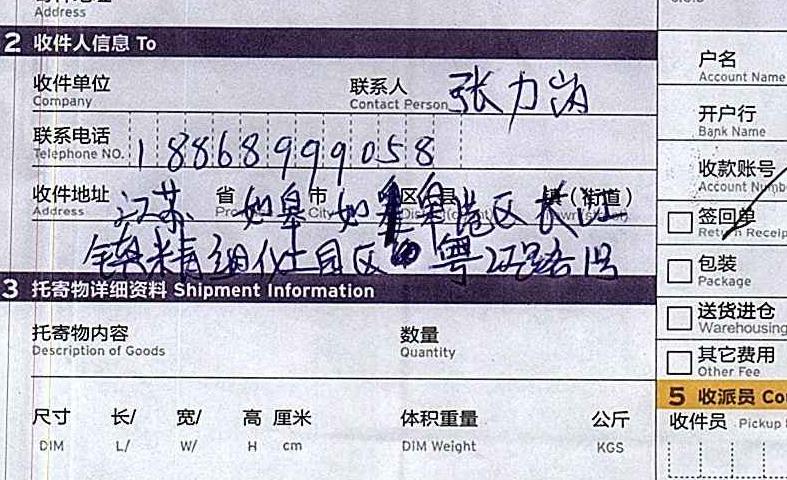 Address
2 收件人信息 To
收件单位 Company 联系人 Contact Person 张力
联系电话 Telephone NO. 18868999058
收件地址 Address 江苏 省 如皋 市 City 如皋港区 区 县 长江 镇(街道)
镇精细化工园区 粤江路1号
3 托寄物详细资料 Shipment Information
托寄物内容 Description of Goods 数量 Quantity
尺寸 DIM 长/ L/ 宽/ W/ 高 H 厘米 cm 体积重量 DIM Weight 公斤 KGS
户名 Account Name
开户行 Bank Name
收款账号 Account Numb
签回单 Return Receip
包装 Package
送货进仓 Warehousing
其它费用 Other Fee
5 收派员 Co
收件员 Pickup